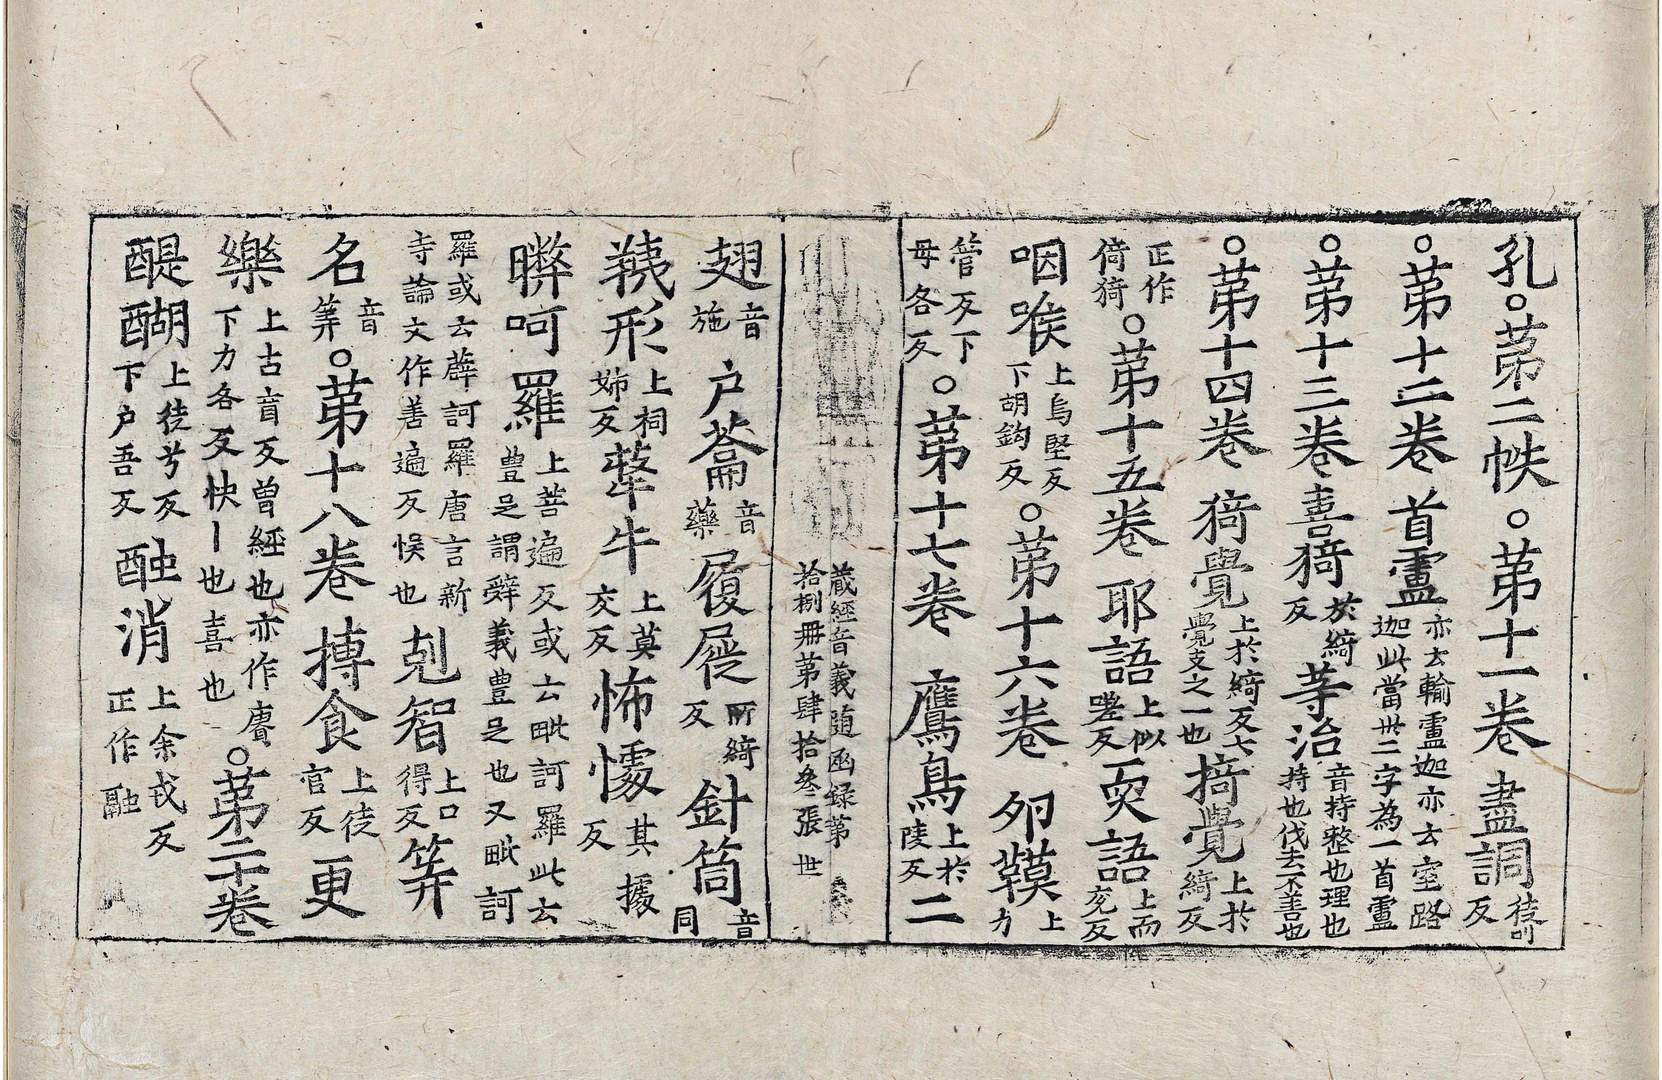 孔○苐二帙○苐十一卷 盡詞徒叫反
○苐十二卷 首盧亦云輸盧迦亦云室路迦此當丗二字為一首盧
○苐十三卷喜猗於綺反䓁治音持整也理也持也伐去不善也
○苐十四卷 猗覺上於綺反七覺支之一也掎覺上於綺反
正作倚猗○苐十五卷 耶語上似嗟反耎語上而兖反
咽喉上烏堅反下胡鈎反○苐十六卷 夘鞕上力
管反下母各反○苐十七卷 鷹鳥上於陵反二
蔵經音義随函録苐拾捌冊苐肆拾叁張 世
翅音施户蘥音藥履屣所綺反針筒音同
羠形上祠姉反犛牛上莫交反怖懅其據反
䏶呵羅上菩遍反或云毗訶羅此云豊足謂辤義豊足也又毗訶
羅或云薜訶羅唐言新寺論文作善遍反悮也剋智上口得反筭
名音筭○苐十八卷 摶食上徒官反更
樂上古盲反曽經也亦作賡下力各反快丨也喜也○苐二十卷
醍醐上徒兮反下户吾反䖝消上余戎反正作融